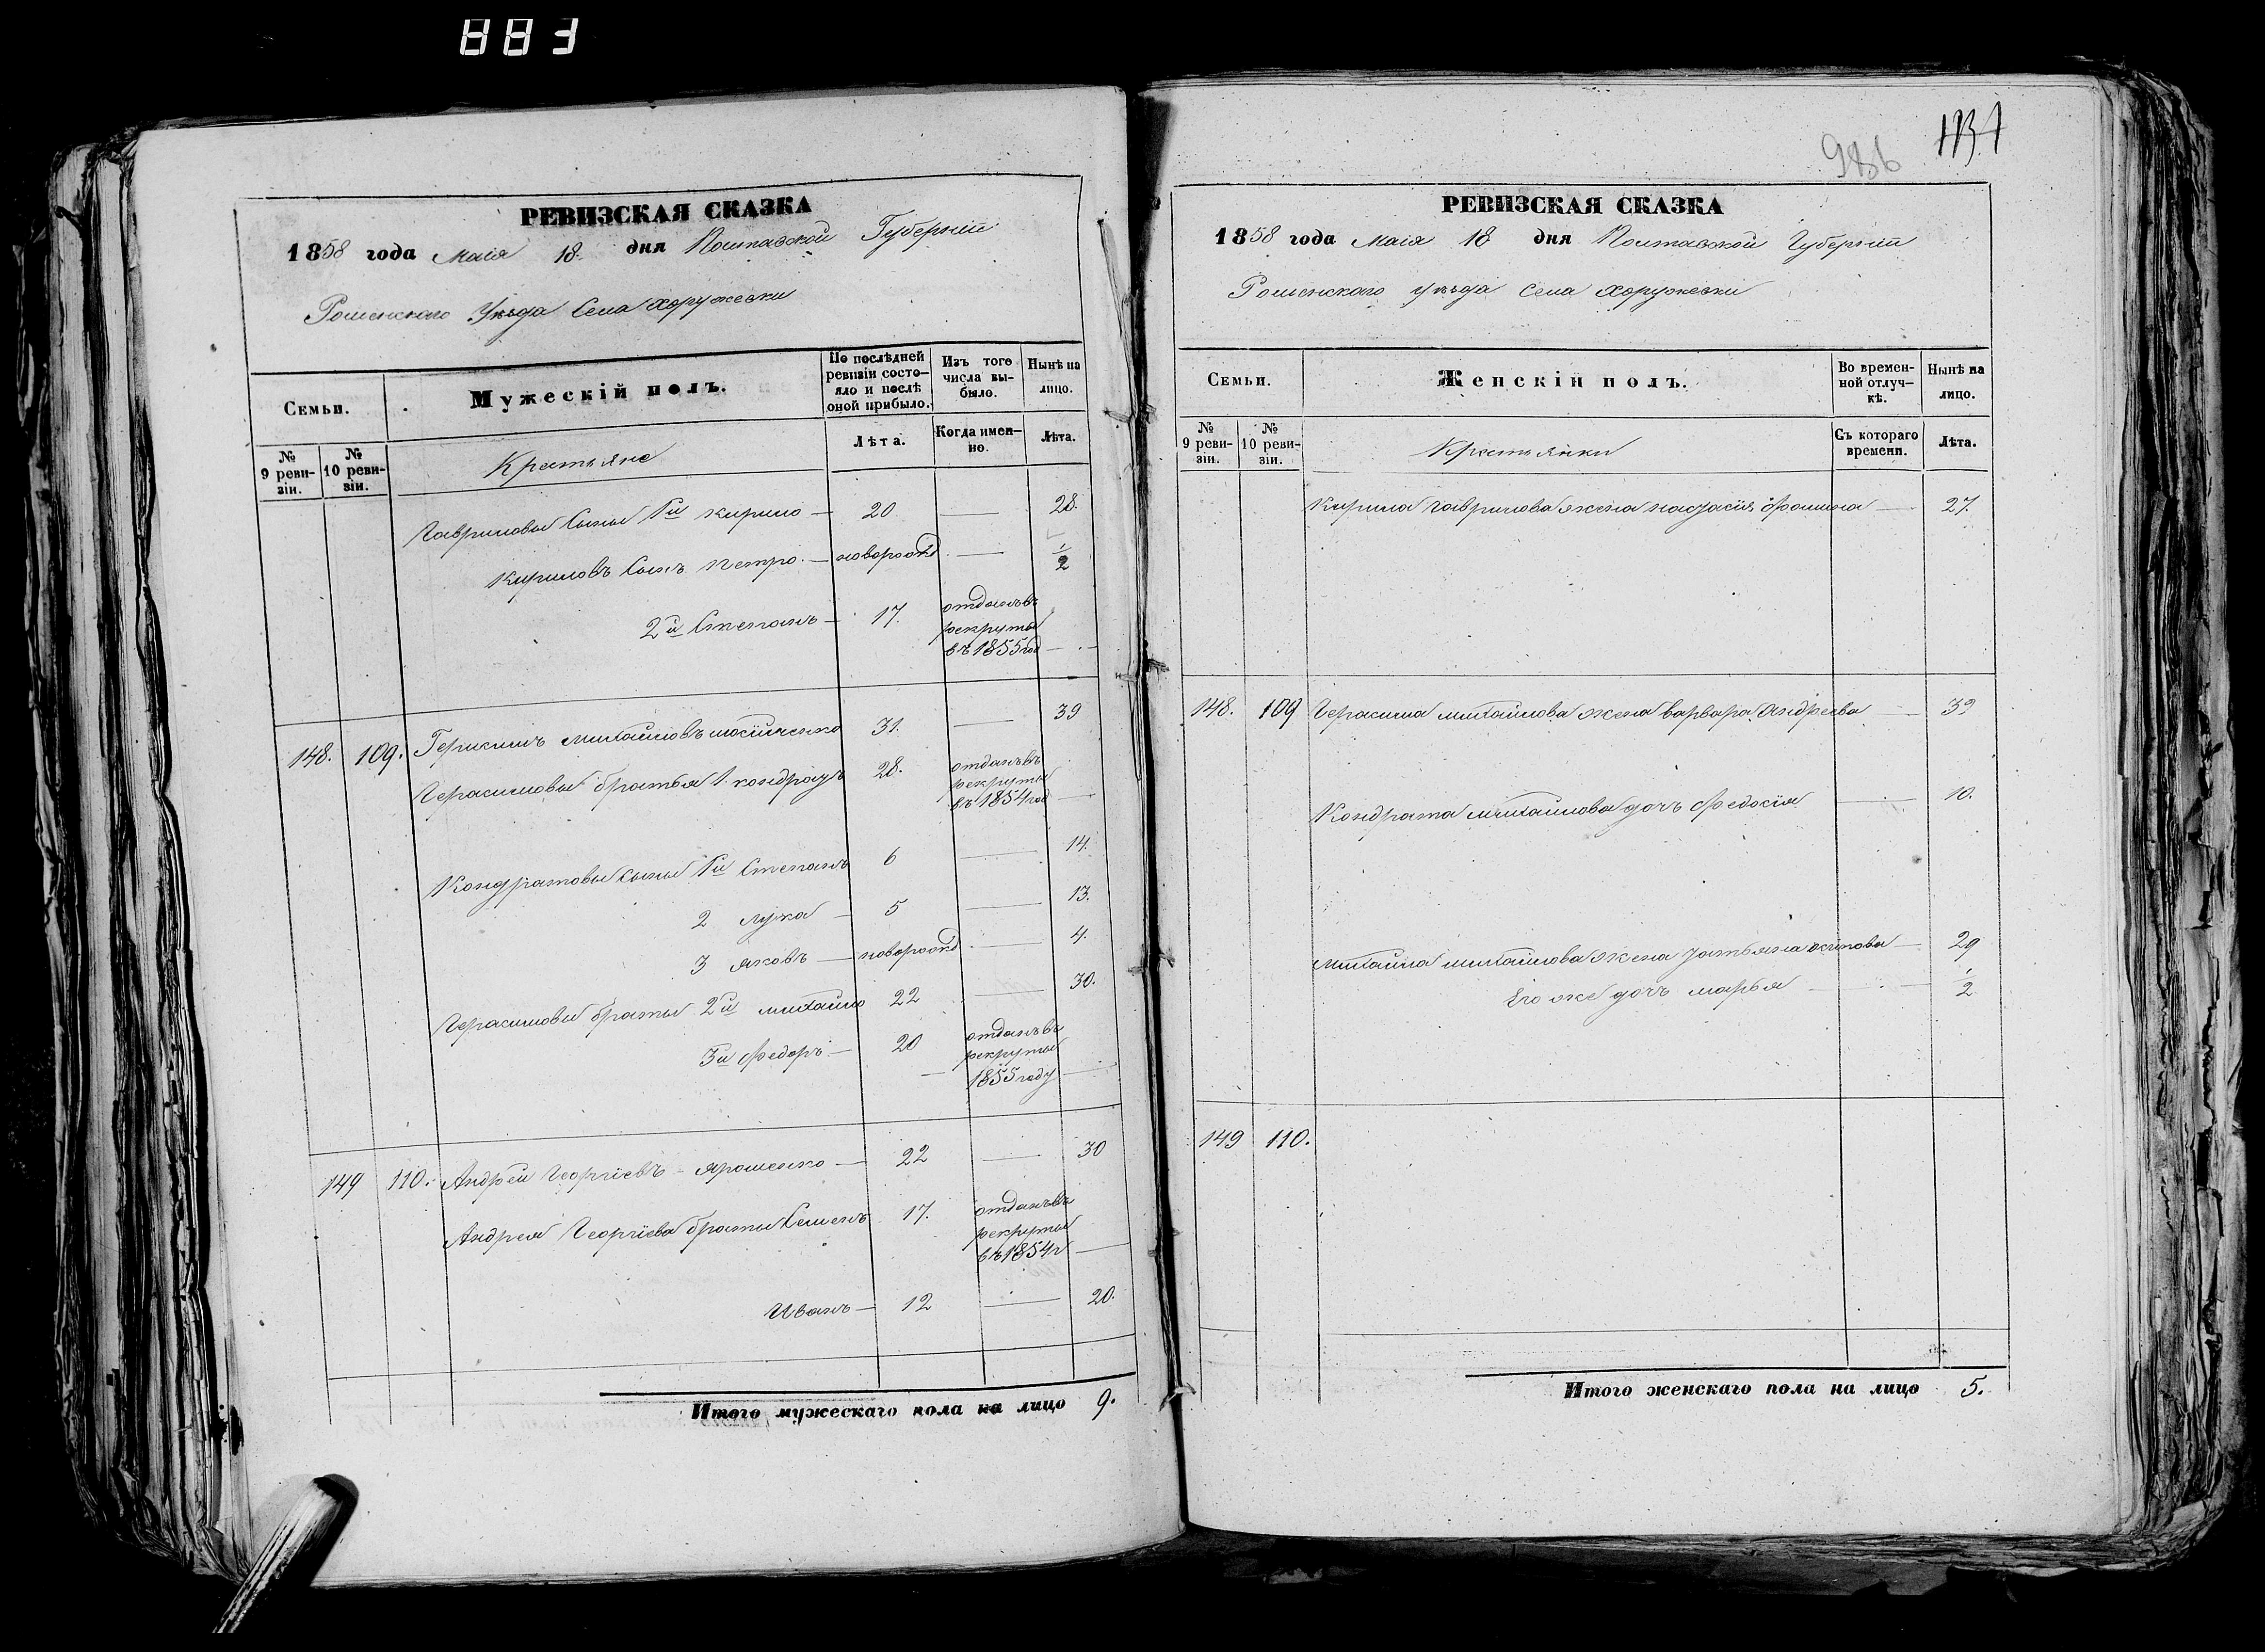 883
РЕВИЗСКАЯ СКАЗКА
1858 года Маія 18. дня Полтавской Губерніи
Роменскаго Уѣзда Села Хоружевки
Семьи.
Мужескій полъ.
По послѣдней ревизіи состо-яло и послѣ оной прибыло.
Изъ того числа вы-было.
Нынѣ на лицо.
№ 9 реви-зіи.
№ 10 реви-зіи.
Крестьяне
Лѣта.
Когда имен-но.
Лѣта.
Гавриловы Сыны 1й Кирило — 20 — 28.
Кириловъ Сынъ Петро. — новорожд — 1/2
2й Степанъ — 17. отданъ въ
рекруты
въ 1855 год —
148. 109. Герасимъ Михайловъ 31. — 39
Герасимовы братья 1. Кондратъ 28. отданъ въ
рекруты
въ 1854 год —
Кондратовы сыны 1й Степанъ 6 — 14.
2 Лука — 5 — 13.
3 Яковъ — новорожд — 4.
Герасимовы браты 2й Михайло 22 — 30.
3й Федоръ — 20 отданъ въ
рекруты
— 1855 году —
149 110. Андрей Георгіевъ — Ярошенко — 22 — 30
Андрея Георгіева браты Семенъ 17. отданъ въ
рекруты
въ 1854 г —
Иванъ — 12 — 20.
Итого мужескаго пола на лицо 9.
986
РЕВИЗСКАЯ СКАЗКА
1858 года Маія 18 дня Полтавской Губерніи
Роменскаго уѣзда Села Хоружевки
Семьи.
Женскій полъ.
Во времен-ной отлуч-кѣ.
Нынѣ на лицо.
№ 9 реви-зіи.
№ 10 реви-зіи.
Крестьянки
Съ котораго времени.
Лѣта.
Кирила Гаврилова жена Настасія Фомина — 27.
148. 109 Герасима Михайлова жена Варвара Андреева — 39
Кондрата Михайлова дочь Федосія — 10.
Михайла Михайлова жена Татьяна — 29
Его же дочь Марья — 1/2
149 110.
Итого женскаго пола на лицо 5.